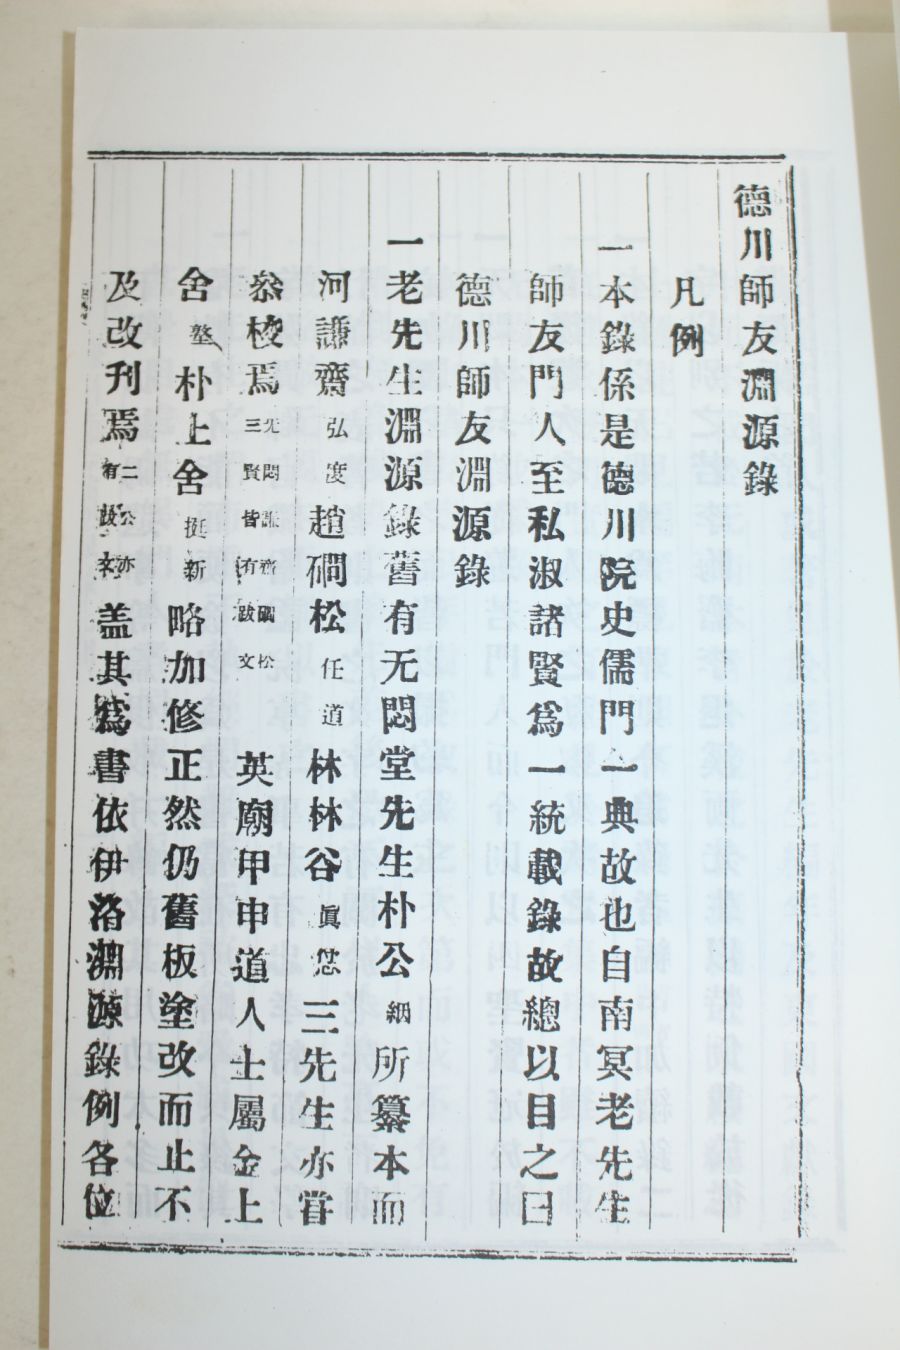 德川師友淵源錄
凡例
一本錄係是德川院史儒門一典故也自南冥老先生
師友門人至私淑諸賢爲一統載錄故總以目之曰
德川師友淵源錄
一老先生淵源錄舊有无悶堂先生朴公絪所纂本而
河謙齋弘度趙磵松任道林林谷眞怤三先生亦嘗
叅校焉无悶謙齋磵松三賢皆有跋文英廟甲申道人士屬金上
舍塾朴上舍挺新略加修正然仍舊板塗改而止不
及改刊焉二公亦有跋文盖其爲書依伊洛淵源錄例各位